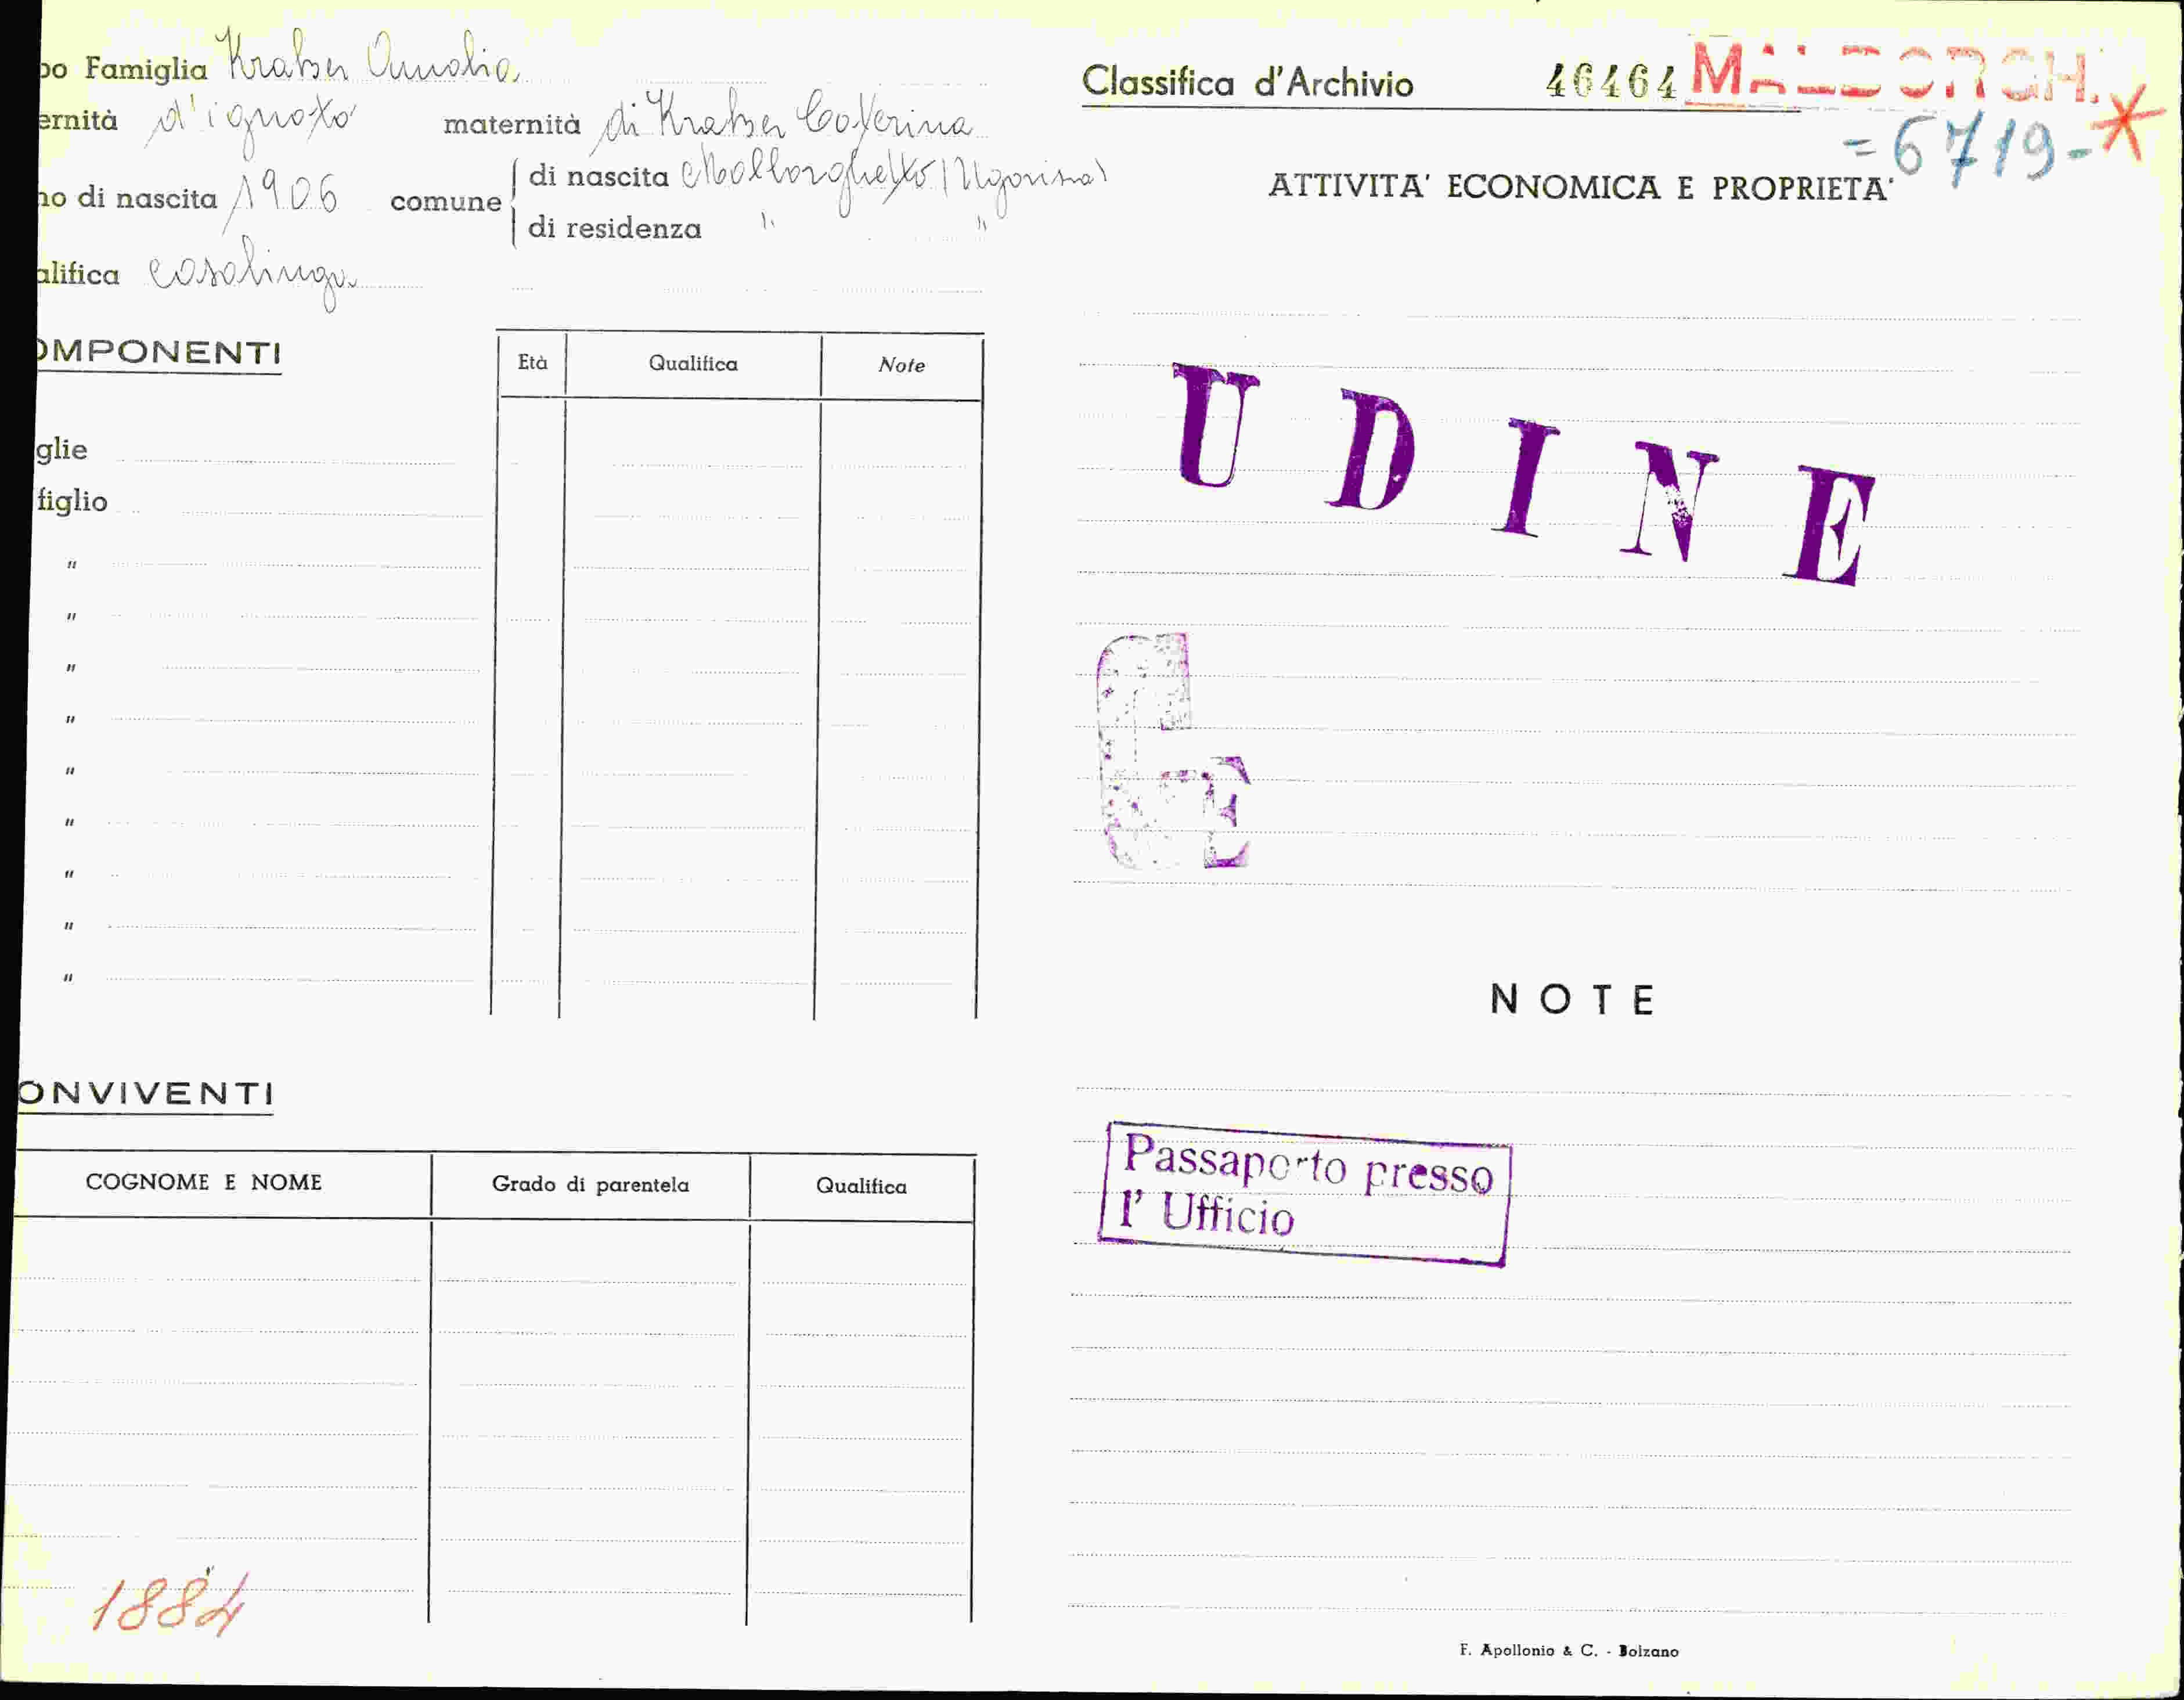 po Famiglia Kratzer Amalia
ernità d'ignoto maternità di Kratzer Caterina
no di nascita 1906 comune di nascita Malborghetto (Ugovizza)
di residenza " "
alifica casalinga
OMPONENTI
Età Qualifica Note
glie
figlio
"
"
"
"
"
"
"
"
"
ONVIVENTI
COGNOME E NOME Grado di parentela Qualifica
1884
Classifica d'Archivio 46464 MALBORGH.
=6719-*
ATTIVITA' ECONOMICA E PROPRIETA'
UDINE
NOTE
Passaporto presso
l' Ufficio
F. Apollonio & C. - Bolzano